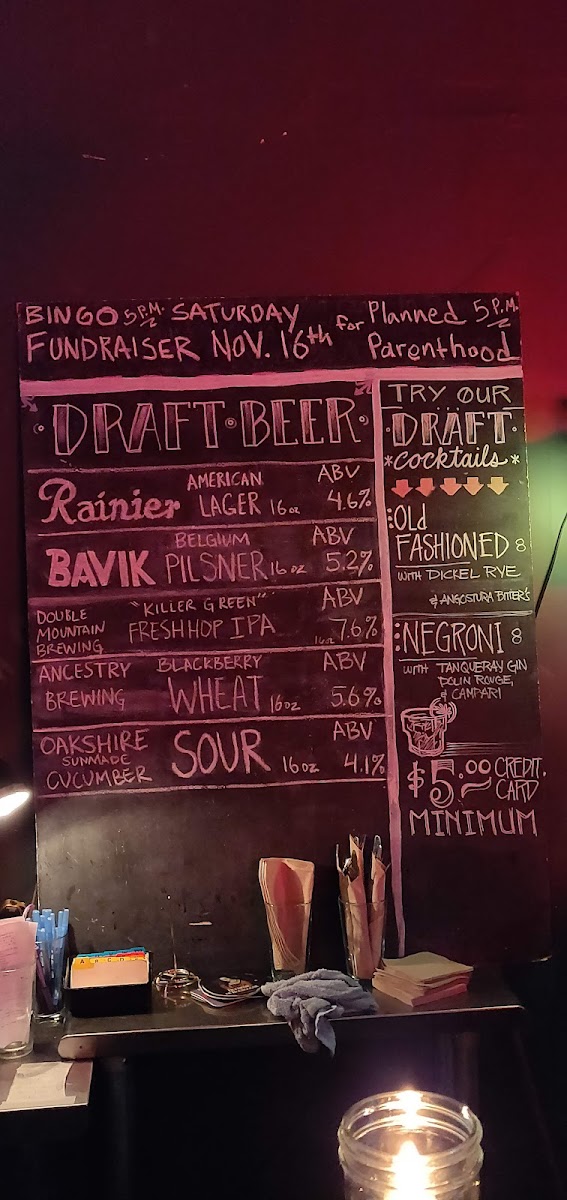 BINGO 5 P.M. SATURDAY for Planned 5 P.M.
FUNDRAISER NOV. 16th Parenthood
DRAFT BEER
Rainier AMERICAN LAGER 16oz ABV 4.6%
BAVIK BELGIUM PILSNER 16 oz ABV 5.2%
DOUBLE MOUNTAIN BREWING "KILLER GREEN" FRESH HOP IPA 16oz ABV 7.6%
ANCESTRY BREWING BLACKBERRY WHEAT 16oz ABV 5.6%
OAKSHIRE SUNMADE CUCUMBER SOUR 16oz ABV 4.1%
TRY OUR
DRÄFT
*cocktails*
OLd
FASHIONED 8
WITH DICKEL RYE
& ANGOSTURA BITTER'S
NEGRONI 8
WITH TANQUERAY GIN
DOLIN ROUGE,
& CAMPARI
$5.00 CREDIT CARD
MINIMUM
A B C D